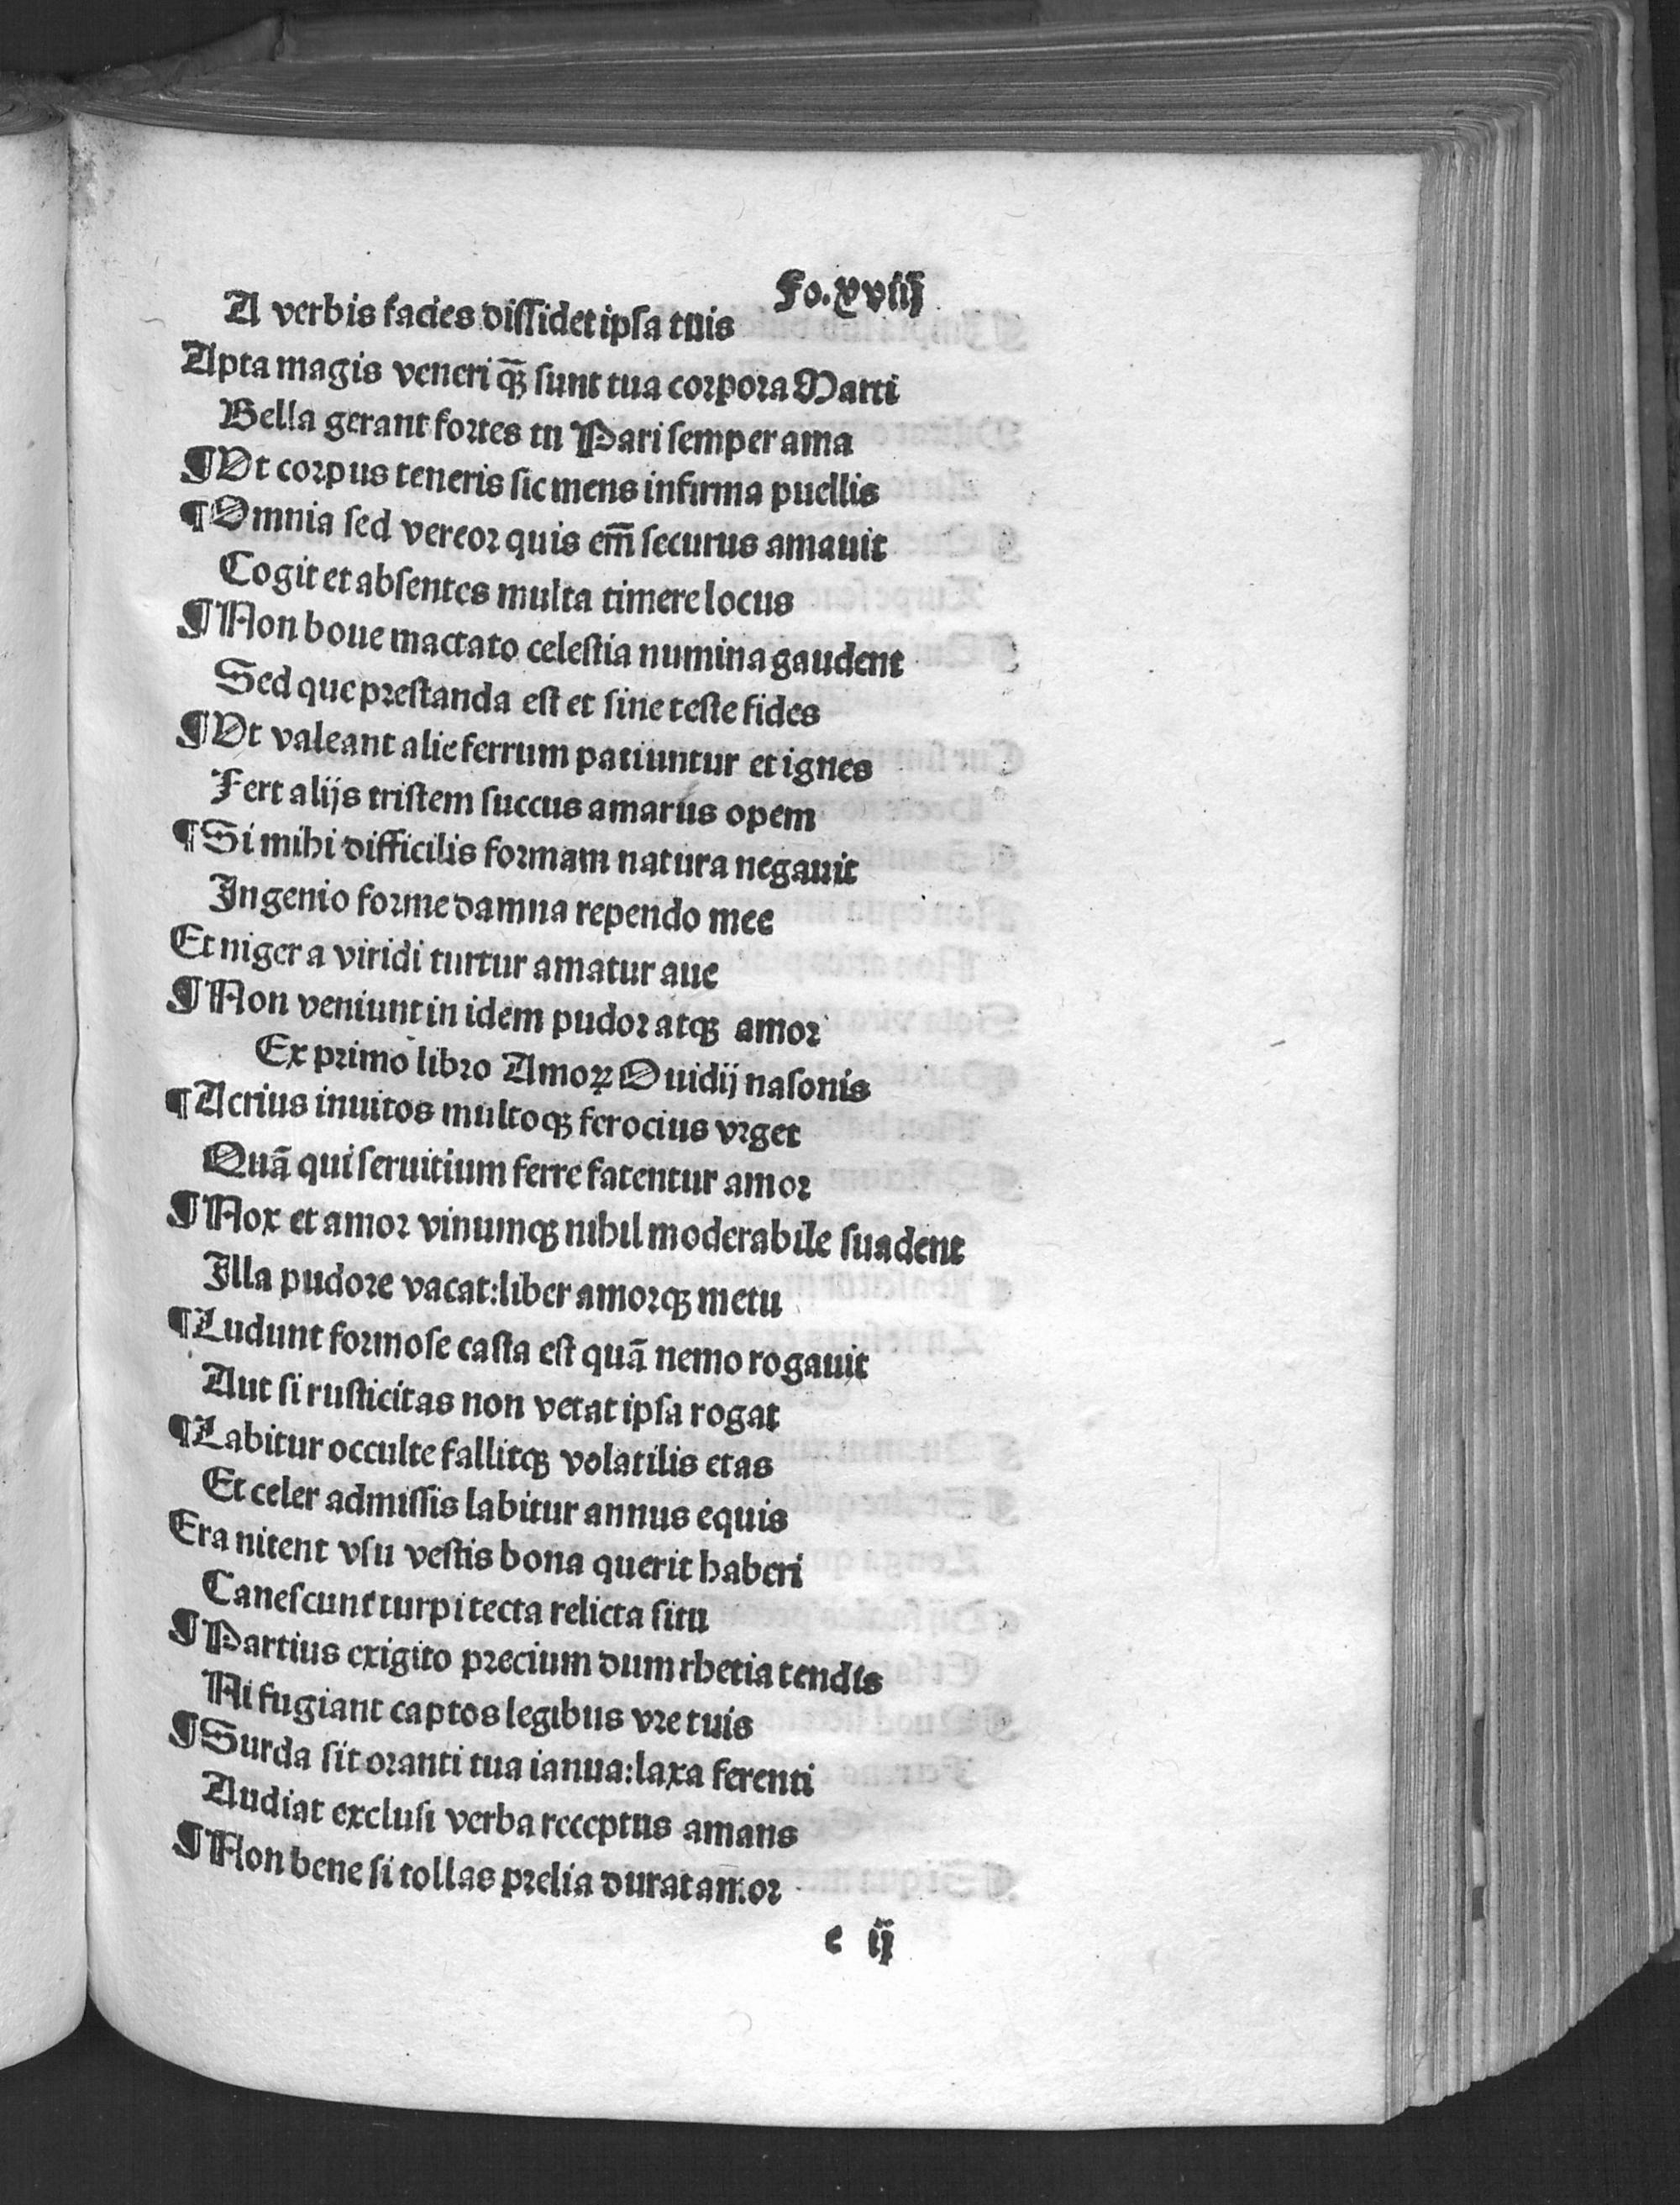 Fo.xviij
A verbis facies dissidet ipsa tuis
Apta magis veneri qꝫ̄ sunt tua corpora Marti
Bella gerant fortes tu Pari semper ama
¶Vt corpus teneris sic mens infirma puellis
¶Omnia sed vereor quis em̄ securus amauit
Cogit et absentes multa timere locus
¶Non boue mactato celestia numina gaudent
Sed que prestanda est et sine teste fides
¶Vt valeant alie ferrum patiuntur et ignes
Fert alijs tristem succus amarus opem
¶Si mihi difficilis formam natura negauit
Ingenio forme damna rependo mee
Et niger a viridi turtur amatur aue
¶Non veniunt in idem pudor atqꝫ amor
Ex primo libro Amoꝝ Ouidij nasonis
¶Acrius inuitos multoqꝫ ferocius vrget
Quā qui seruitium ferre fatentur amor
¶Nox et amor vinumqꝫ nihil moderabile suadent
Illa pudore vacat:liber amorqꝫ metu
¶Ludunt formose casta est quā nemo rogauit
Aut si rusticitas non vetat ipsa rogat
¶Labitur occulte fallitqꝫ volatilis etas
Et celer admissis labitur annus equis
Era nitent vsu vestis bona querit haberi
Canescunt turpi tecta relicta situ
¶Partius exigito precium dum rhetia tendis
Ni fugiant captos legibus vre tuis
¶Surda sit oranti tua ianua:laxa ferenti
Audiat exclusi verba receptus amans
¶Non bene si tollas prelia durat amor
c ij